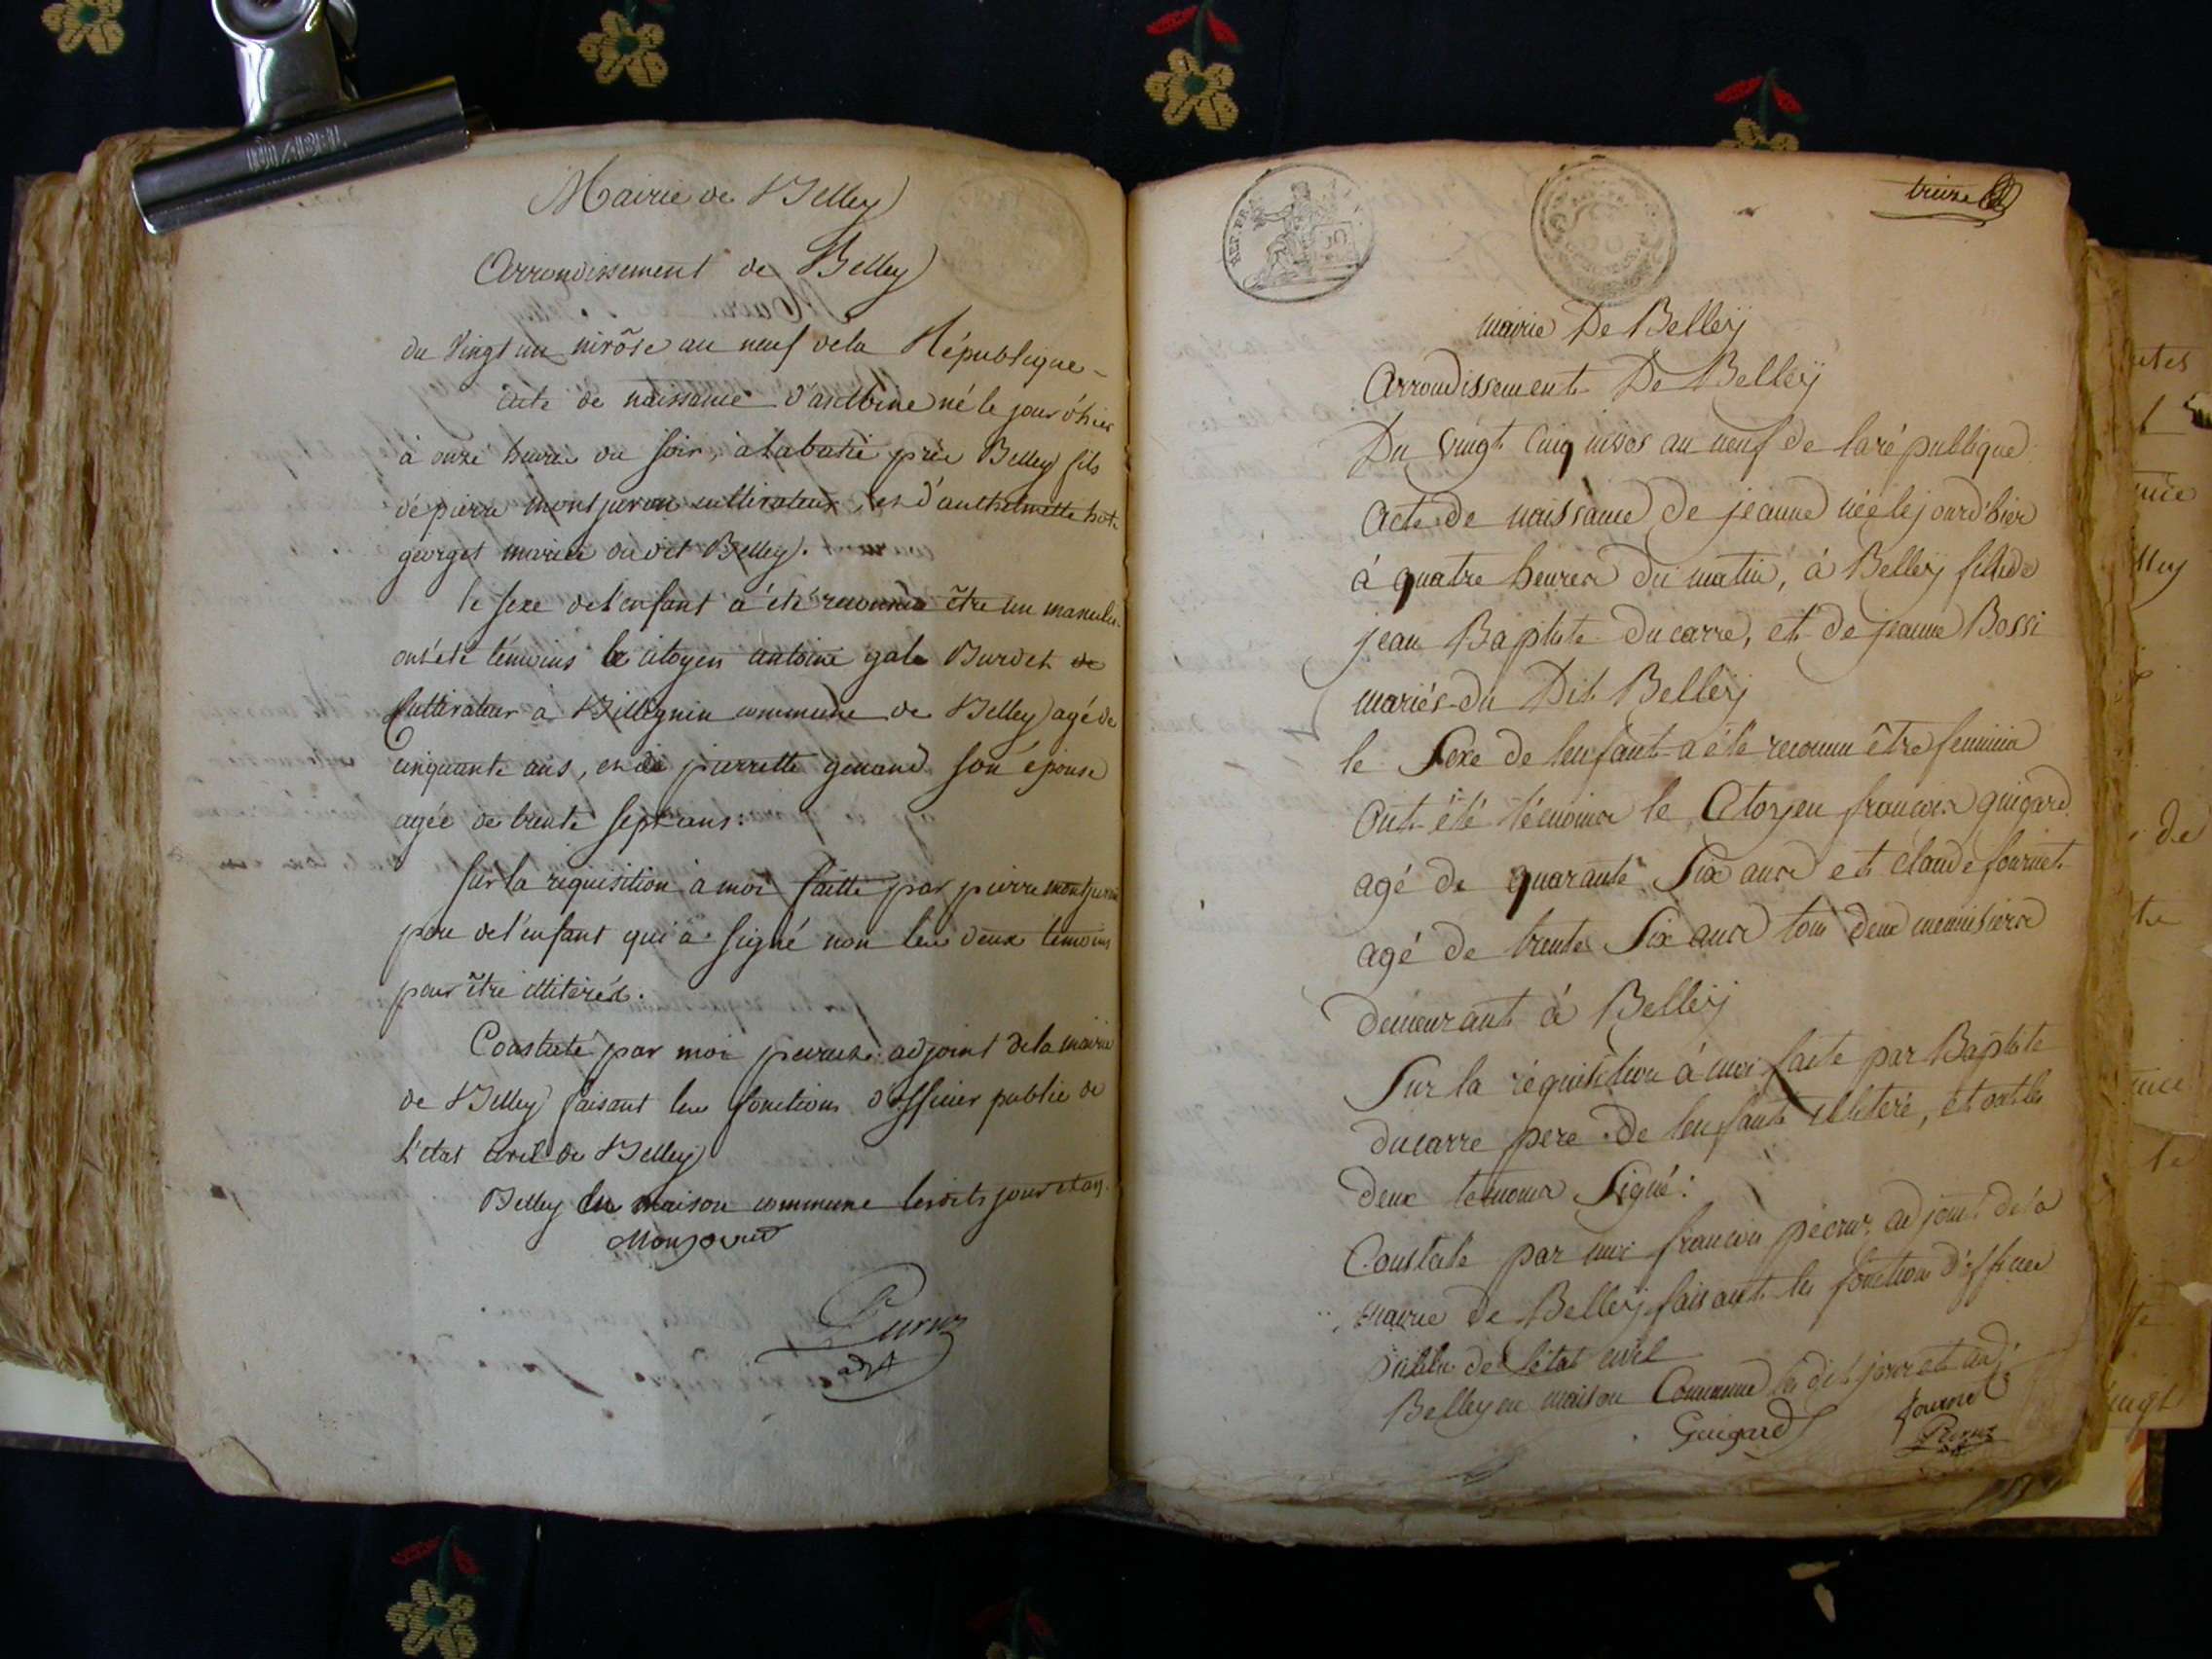 Mairie de Belley
Arrondissement de Belley
du vingt un nivôse an neuf de la République
acte de naissance d'anthelme né le jour d'hier
à onze heures du soir, à labatie près Belley fils
de pierre montjuron cultivateur, et d'anthelmette
georget mariés dudit Belley.
le sexe de l'enfant a été reconnu être un masculin
ont été témoins le citoyen antoine gale Burdet
Cultivateur à Billignin commune de Belley agé de
cinquante ans, et pierrette genand son épouse
agée de trente sept ans.
Sur la requisition a moi faitte par pierre montjuron
pere de l'enfant qui a signé non les deux témoins
pour être illitérés.
Constaté par moi peiruz adjoint de la mairie
de Belley faisant les fonctions d'officier public de
l'etat civil de Belley
Belley en maison commune lesdits jour et an.
adjt
treize
REP. FRA.
mairie De Belleÿ
Arrondissement De Belleÿ
Du vingt cinq nivos an neuf de la république
Acte de naissance de jeanne née le jour d'hier
à quatre heures du matin, à Belleÿ fille de
jean Baptiste ducarre, et de jeanne Bossi
mariés du Dit Belleÿ
le Sexe de lenfant a été reconnu être feminin
Ont été témoins le Citoyen francois guigard
agé de quarante Six ans et claude fournet
agé de trente Six ans tous deux menuisiers
demeurant à Belleÿ
Sur la réquisition à moi faite par Baptiste
ducarre pere de lenfant illiteré, et ont les
deux temoins Signé:
Constaté par moi francois adjoint de la
mairie de Belleÿ faisant les fonctions d'officier
Public de l'état civil
Belley en maison Commune les dit jour et an
Guigard fournet